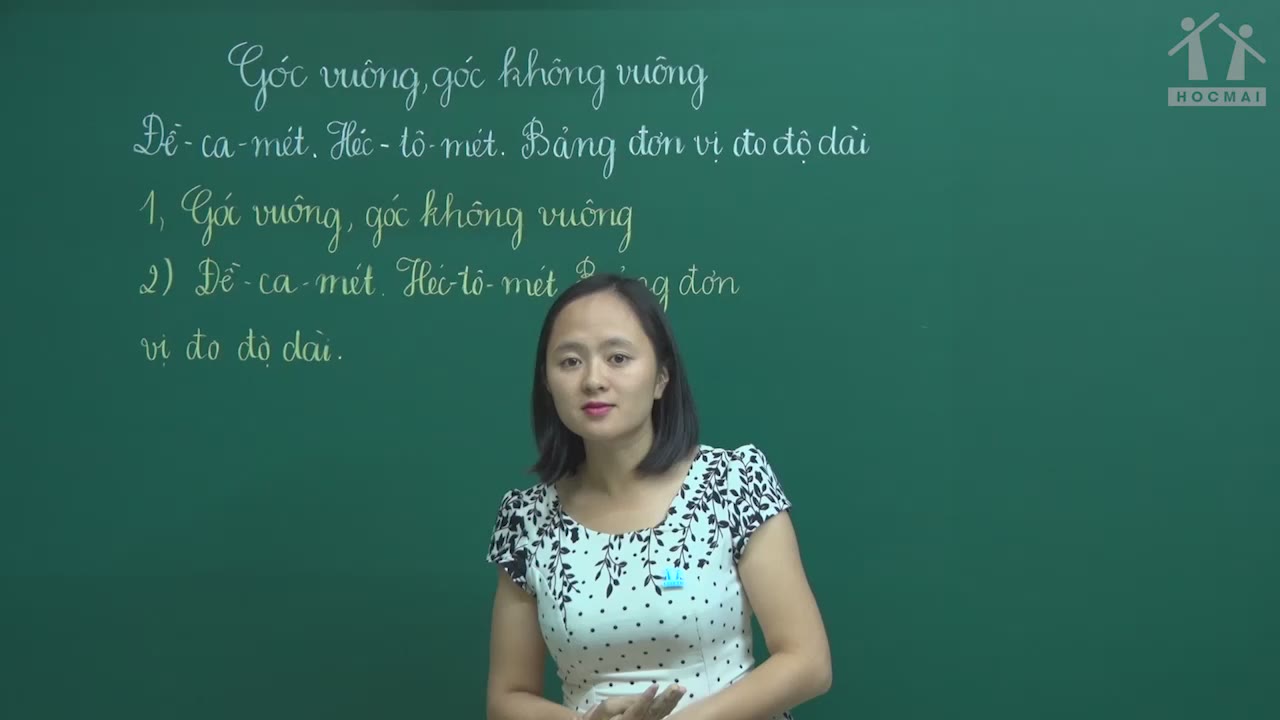 Góc vuông, góc không vuông
Đề-ca-mét. Héc-tô-mét. Bảng đơn vị đo độ dài
1, Góc vuông, góc không vuông
2) Đề-ca-mét. Héc-tô-mét. Bảng đơn
vị đo độ dài.
HOCMAI